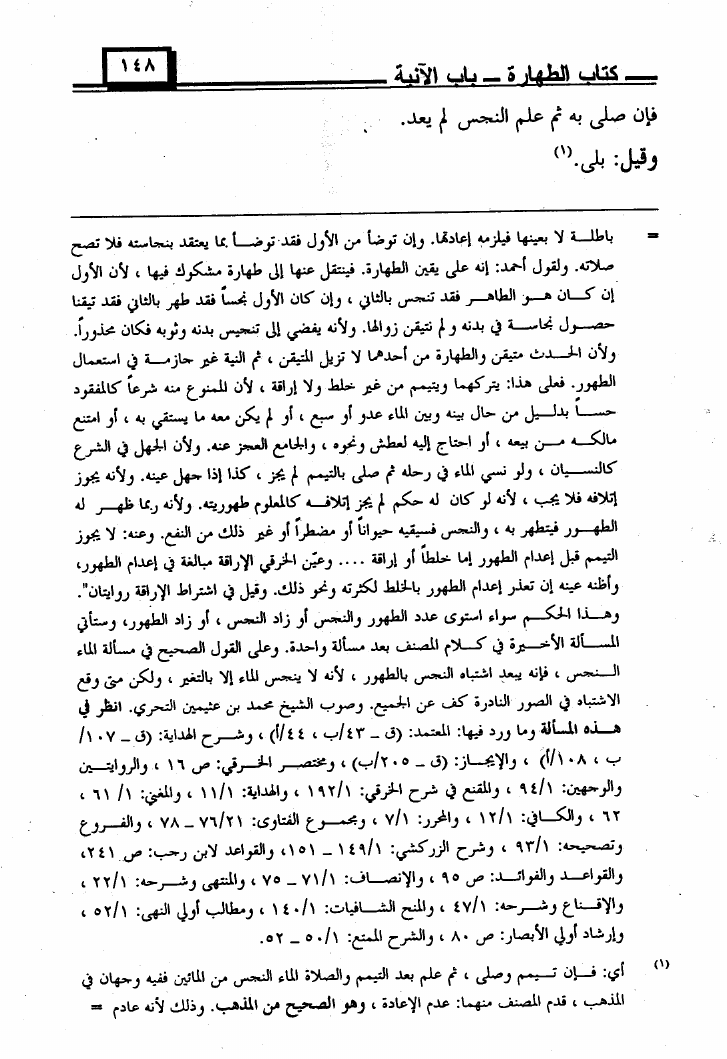 كتاب الطهارة – باب الآنية
١٤٨
فإن صلى به ثم علم النجس لم يعد.
وقيل: بلى.(١)
= باطلة لا بعينها فيلزمه إعادتها. وإن توضأ من الأول فقد توضأ بما يعتقد بنجاسته فلا تصح
صلاته. ولقول أحمد: إنه على يقين الطهارة. فينتقل عنها إلى طهارة مشكوك فيها ، لأن الأول
إن كان هو الطاهر فقد تنجس بالثاني ، وإن كان الأول نجساً فقد طهر بالثاني فقد تيقنا
حصول نجاسة في بدنه و لم نتيقن زوالها. ولأنه يفضي إلى تنجيس بدنه وثوبه فكان محذوراً.
ولأن الحدث متيقن والطهارة من أحدهما لا تزيل المتيقن ، ثم النية غير جازمة في استعمال
الطهور. فعلى هذا: يتركهما ويتيمم من غير خلط ولا إراقة ، لأن الممنوع منه شرعاً كالمفقود
حساً بدليل من حال بينه وبين الماء عدو أو سبع ، أو لم يكن معه ما يستقي به ، أو امتنع
مالكه من بيعه ، أو احتاج إليه لعطش ونحوه ، والجامع العجز عنه. ولأن الجهل في الشرع
كالنسيان ، ولو نسي الماء في رحله ثم صلى بالتيمم لم يجز ، كذا إذا جهل عينه. ولأنه يجوز
إتلافه فلا يجب ، لأنه لو كان له حكم لم يجز إتلافه كالمعلوم طهوريته. ولأنه ربما ظهر له
الطهور فيتطهر به ، والنجس فسيقيه حيواناً أو مضطراً أو غير ذلك من النفع. وعنه: لا يجوز
التيمم قبل إعدام الطهور إما خلطاً أو إراقة .... وعيّن الخرقي الإراقة مبالغة في إعدام الطهور،
وأظنه عينه إن تعذر إعدام الطهور بالخلط لكثرته ونحو ذلك. وقيل في اشتراط الإراقة روايتان".
وهذا الحكم سواء استوى عدد الطهور والنجس أو زاد النجس ، أو زاد الطهور، وستأتي
المسألة الأخيرة في كلام المصنف بعد مسألة واحدة. وعلى القول الصحيح في مسألة الماء
النجس ، فإنه يبعد اشتباه النجس بالطهور ، لأنه لا ينجس الماء إلا بالتغير ، ولكن متى وقع
الاشتباه في الصور النادرة كف عن الجميع. وصوب الشيخ محمد بن عثيمين التحري. انظر في
هذه المسألة وما ورد فيها: المعتمد: (ق – ٤٣/ب ، ٤٤/أ) ، وشرح الهداية: (ق – ١٠٧/
ب ، ١٠٨/أ) ، والإيجاز: (ق – ٢٠٥/ب) ، ومختصر الخرقي: ص ١٦ ، والروايتين
والوجهين: ٩٤/١ ، والمقنع في شرح الخرقي: ١٩٢/١ ، والهداية: ١١/١ ، والمغني: ١/ ٦١ ،
٦٢ ، والكافي: ١٢/١ ، والمحرر: ٧/١ ، ومجموع الفتاوى: ٧٦/٢١ – ٧٨ ، والفروع
وتصحيحه: ٩٣/١ ، وشرح الزركشي: ١٤٩/١ – ١٥١، والقواعد لابن رجب: ص ٢٤١،
والقواعد والفوائد: ص ٩٥ ، والإنصاف: ٧١/١ – ٧٥ ، والمنتهى وشرحه: ٢٢/١ ،
والإقناع وشرحه: ٤٧/١ ، والمنح الشافيات: ١٤٠/١ ، ومطالب أولي النهى: ٥٢/١ ،
وإرشاد أولي الأبصار: ص ٨٠ ، والشرح الممتع: ٥٠/١ – ٥٢.
(١) أي: فإن تيمم وصلى ، ثم علم بعد التيمم والصلاة الماء النجس من المائين ففيه وجهان في
المذهب ، قدم المصنف منهما: عدم الإعادة ، وهو الصحيح من المذهب. وذلك لأنه عادم =